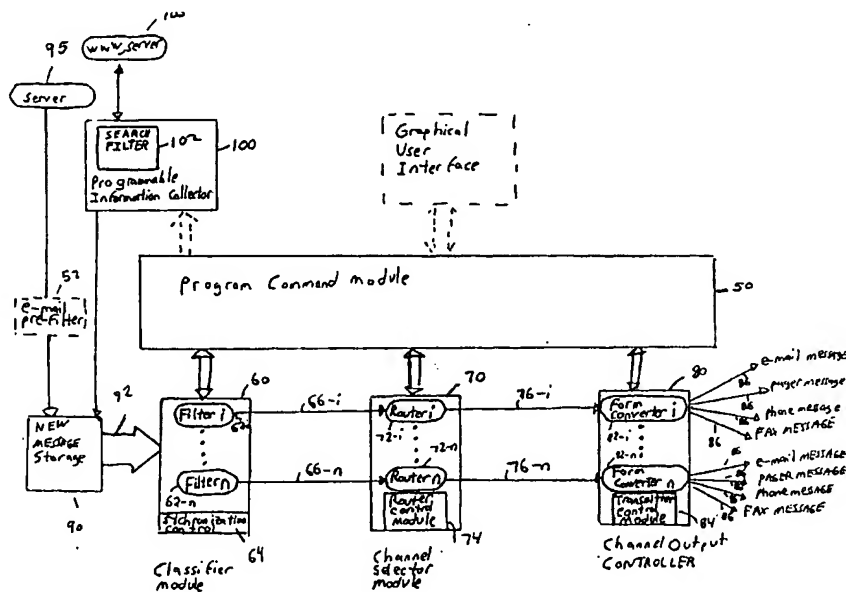 100
www server
95
Server
SEARCH
FILTER
102
100
Programmable
Information Collector
Graphical
User
Interface
Program Command module
50
52
e-mail
pre-Filter
92
NEW
MESSAGE
Storage
90
60
Filter i
62-i
Filter n
62-n
Sychronization
control
64
Classifier
module
66-i
66-n
70
Router i
72-i
72-n
Router n
Router
control
module
74
Channel
Selector
module
76-i
76-n
80
Form
Converter i
82-i
82-n
Form
Converter n
control
module
84
Channel Output
CONTROLLER
e-mail message
86
pager message
86
phone message
86
FAX MESSAGE
86
e-mail MESSAGE
86
PAGER MESSAGE
86
phone message
86
FAX MESSAGE
86